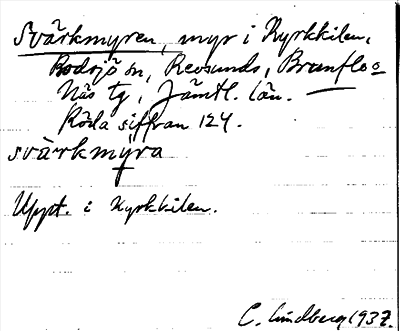 Svärkmyren, myr i Kyrkkilen,
Bodsjö sn, Revsunds, Brunflo o
Näs tg, Jämtl. län.
Röda siffran 124.
svàrkmýra
Uppt. i Kyrkkilen.
C. Lindberg 1937.